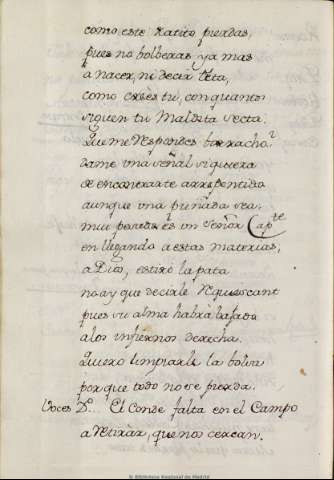 como este ratito pierdas,
pues no bolberas, ya mas
a nacer, ni decir teta,
como creès tú, con quantos
siguen tu Maldita secta.
Que me respondes borracho?
dame una señal siquiera
de encontrarte arrepentido
aunque una puñada sea.
mui es un señor Capte
en llegando a estas materias,
a Dios, estiró la pata
no ay que decirle requiescant
pues su alma habrà bajado
a los infiernos derecha.
Quiero limpiarle la bolsa
por que todo no se pierda.
Voces Do... El Conde falta en el Campo
a retirar, que nos cercan.
© Biblioteca Nacional de Madrid